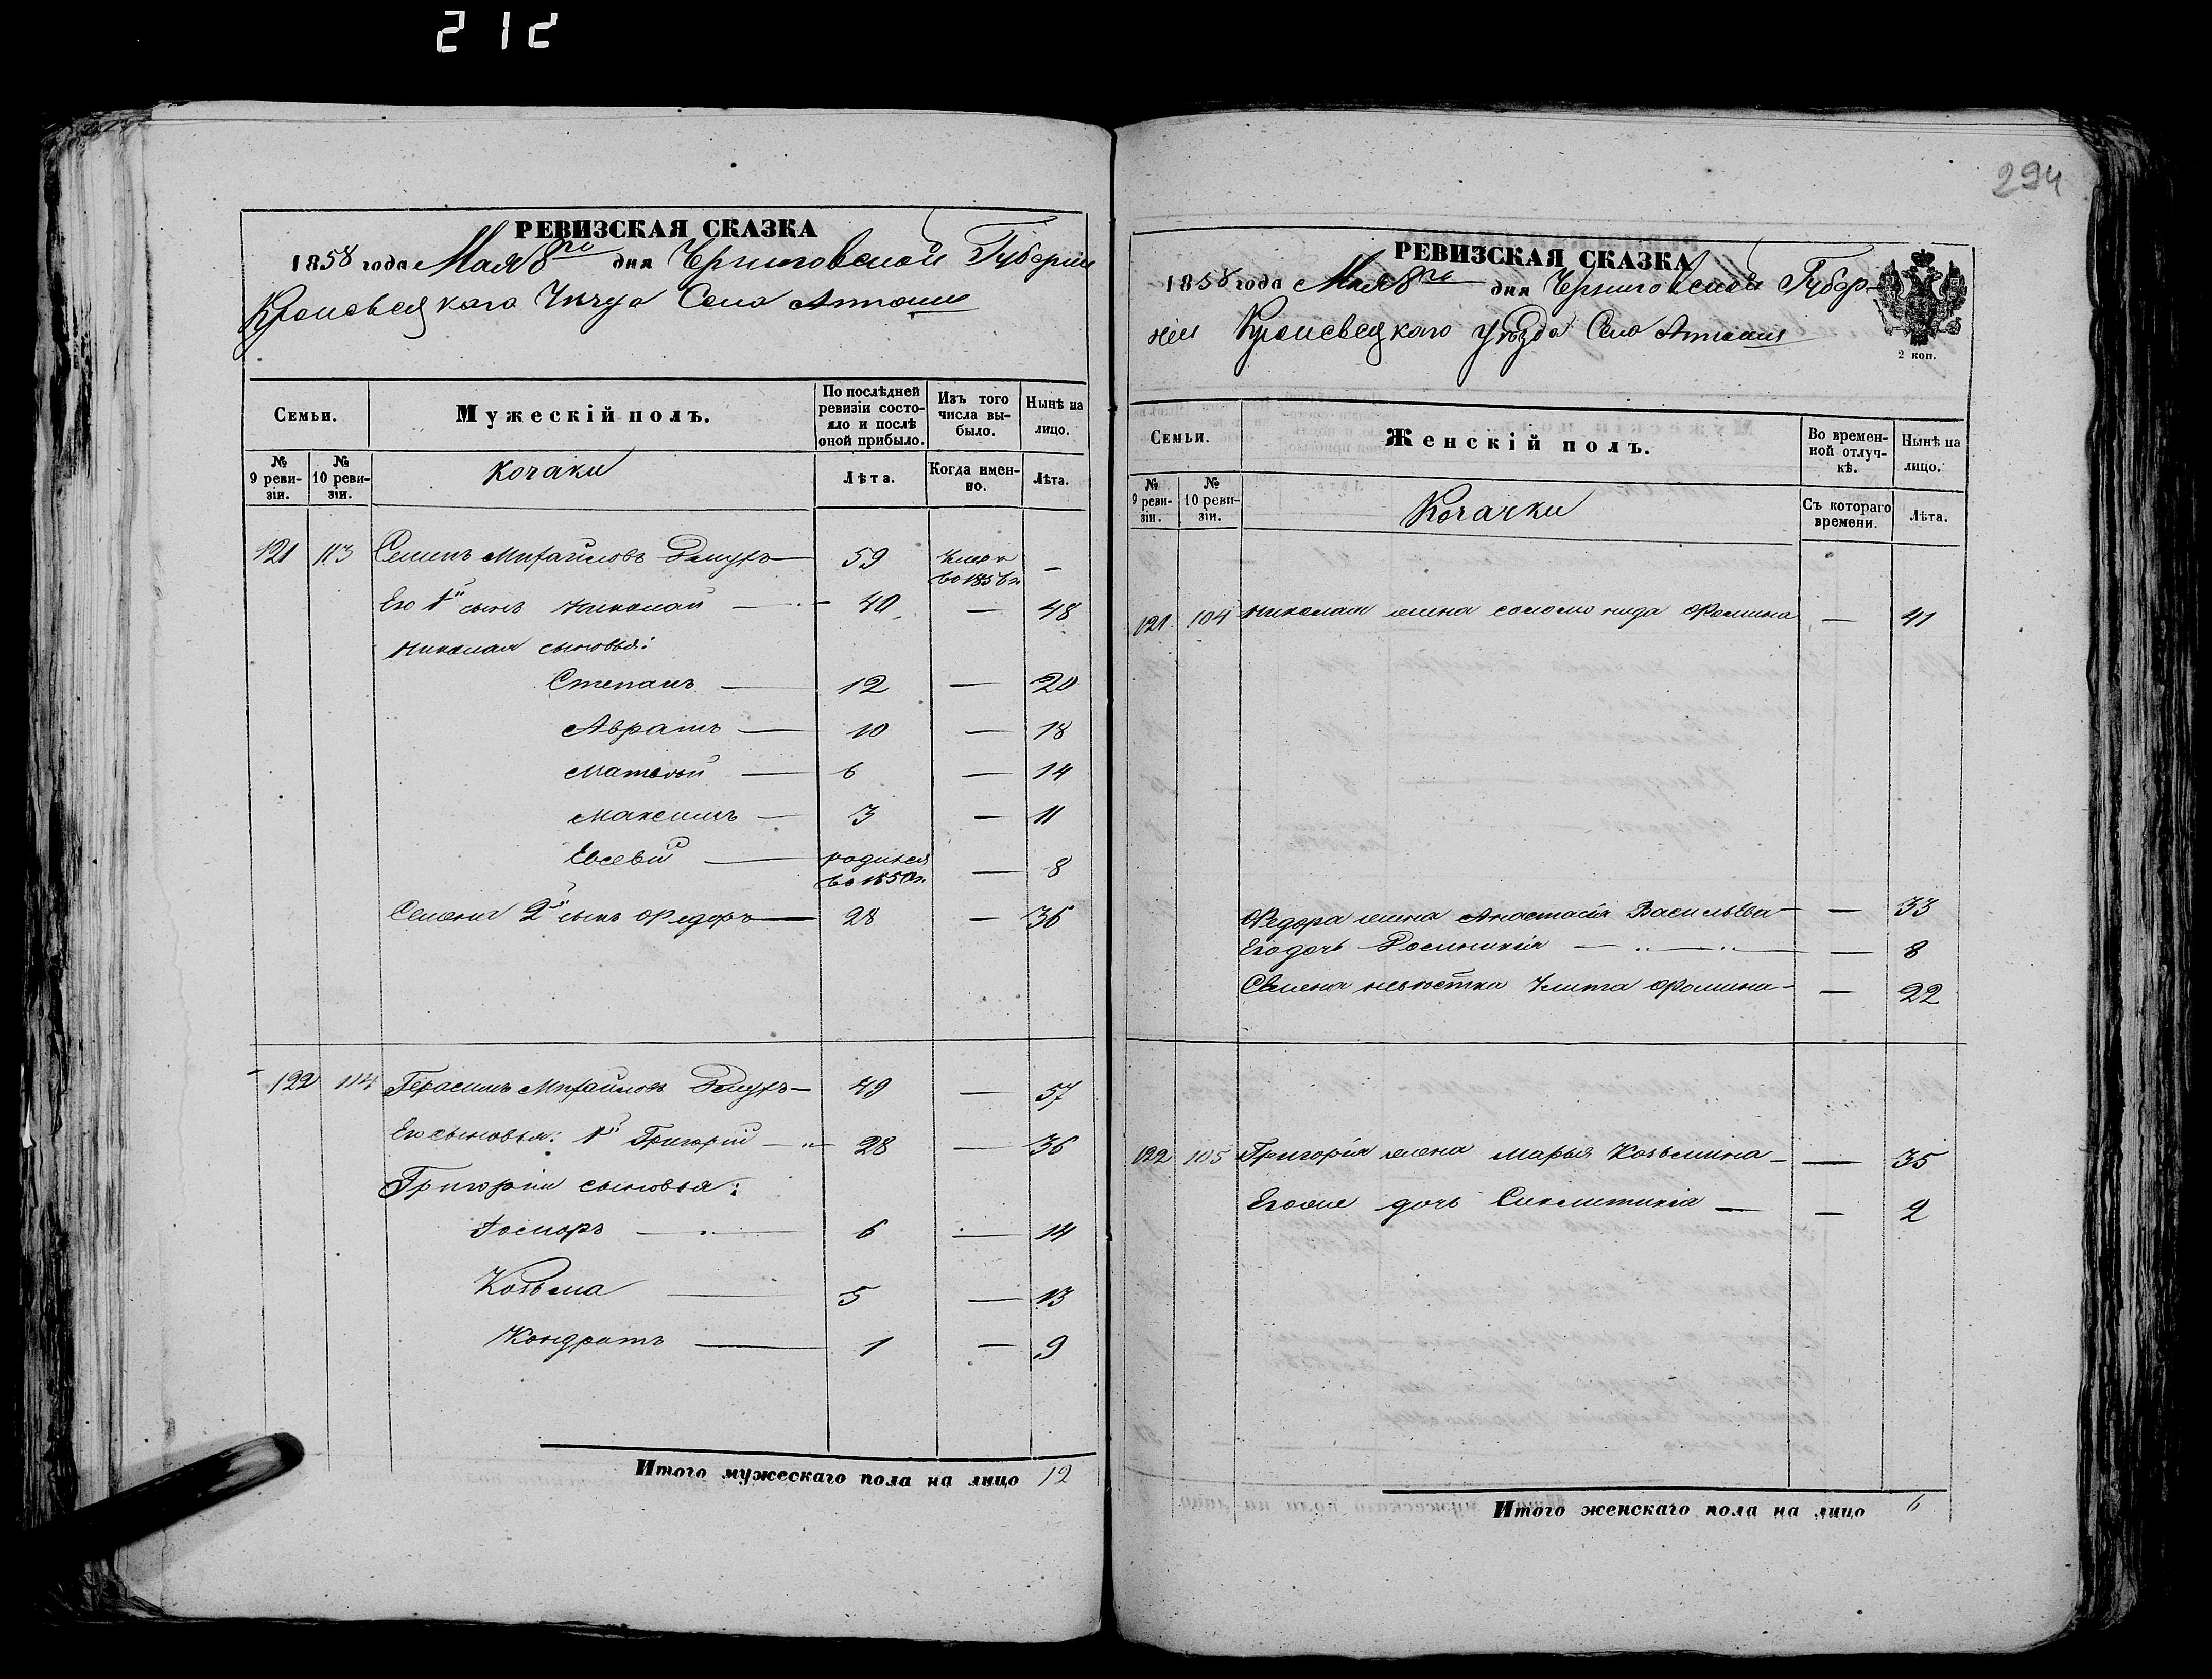 212
294
РЕВИЗСКАЯ СКАЗКА
1858 года Мая 8го дня Черниговской Губерніи
Кролевецкаго Села
Семьи.
Мужескій полъ.
По послѣдней ревизіи состояло и послѣ оной прибыло.
Изъ того числа выбыло.
Нынѣ на лицо.
№ 9 ревизіи.
№ 10 ревизіи.
Козаки
Лѣта.
Когда именно.
Лѣта.
121 113 Семенъ Михайловъ 59 —
Его 1й сынъ Николай — 40 — 48
Николая сыновья:
Степанъ — 12 — 20
Абрамъ — 10 — 18
Матвѣй — 6 — 14
Максимъ — 3 — 11
Евсевій — родился во 1850 г. — 8
Семена 2й сынъ Федоръ — 28 — 36
122 114 Герасимъ Михайловъ — 49 — 57
Его сыновья: 1й Григорій — 28 — 36
Григорія сыновья:
— 6 — 14
Козьма — 5 — 13
Кондратъ — 1 — 9
Итого мужескаго пола на лицо 12
РЕВИЗСКАЯ СКАЗКА
1858 года Мая 8го дня Черниговской Губер-
ніи Кролевецкаго уѣзда Села
2 коп.
Семьи.
Женскій полъ.
Во временной отлучкѣ.
Нынѣ на лицо.
№ 9 ревизіи.
№ 10 ревизіи.
Козачки
Съ котораго времени.
Лѣта.
121 104 Николая жена Соломонида Фомина — 41
Федора жена Анастасія Васильева — — 33
Его дочь — — 8
Семена невѣстка Фомина — — 22
122 105 Григорія жена Марья Козьмина — — 35
Его же дочь Синклитикія — — 2
Итого женскаго пола на лицо 6